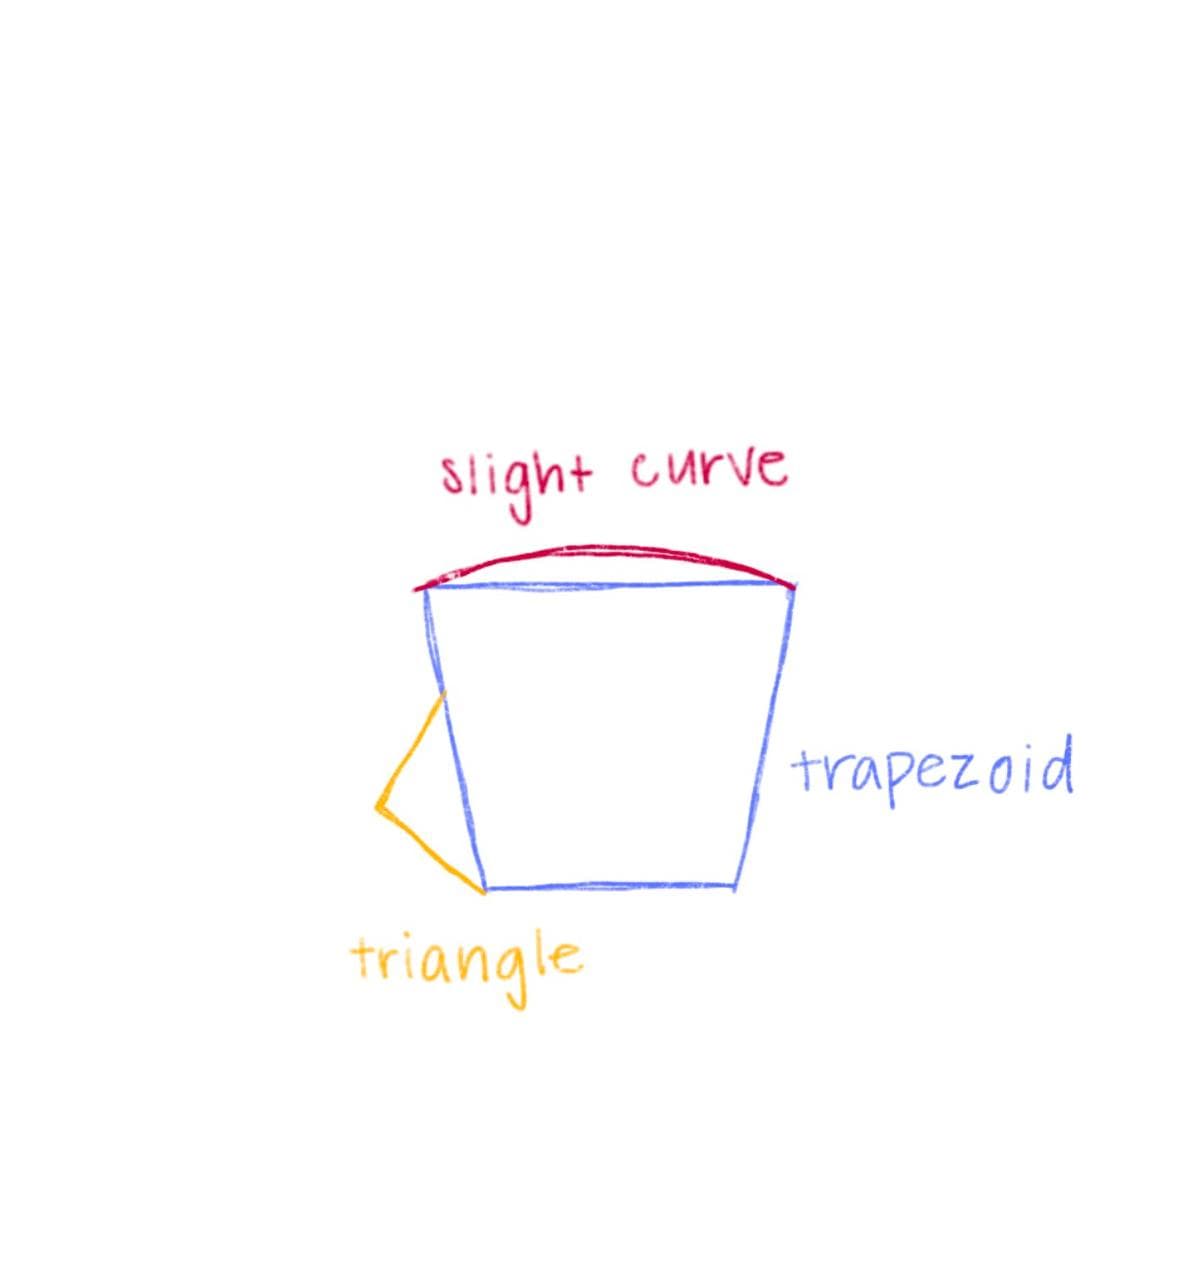 slight curve
trapezoid
triangle